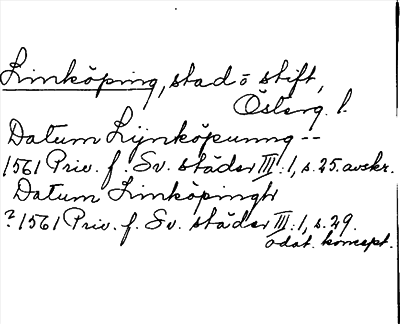 Linköping, stad o stift,
Österg. l.
Datum Lijnköpunng --
1561 Priv. f. Sv. städer III:1, s. 25. avskr.
Datum Linköpingh
? 1561 Priv. f. Sv. städer III:1, s. 29.
odat. koncept.